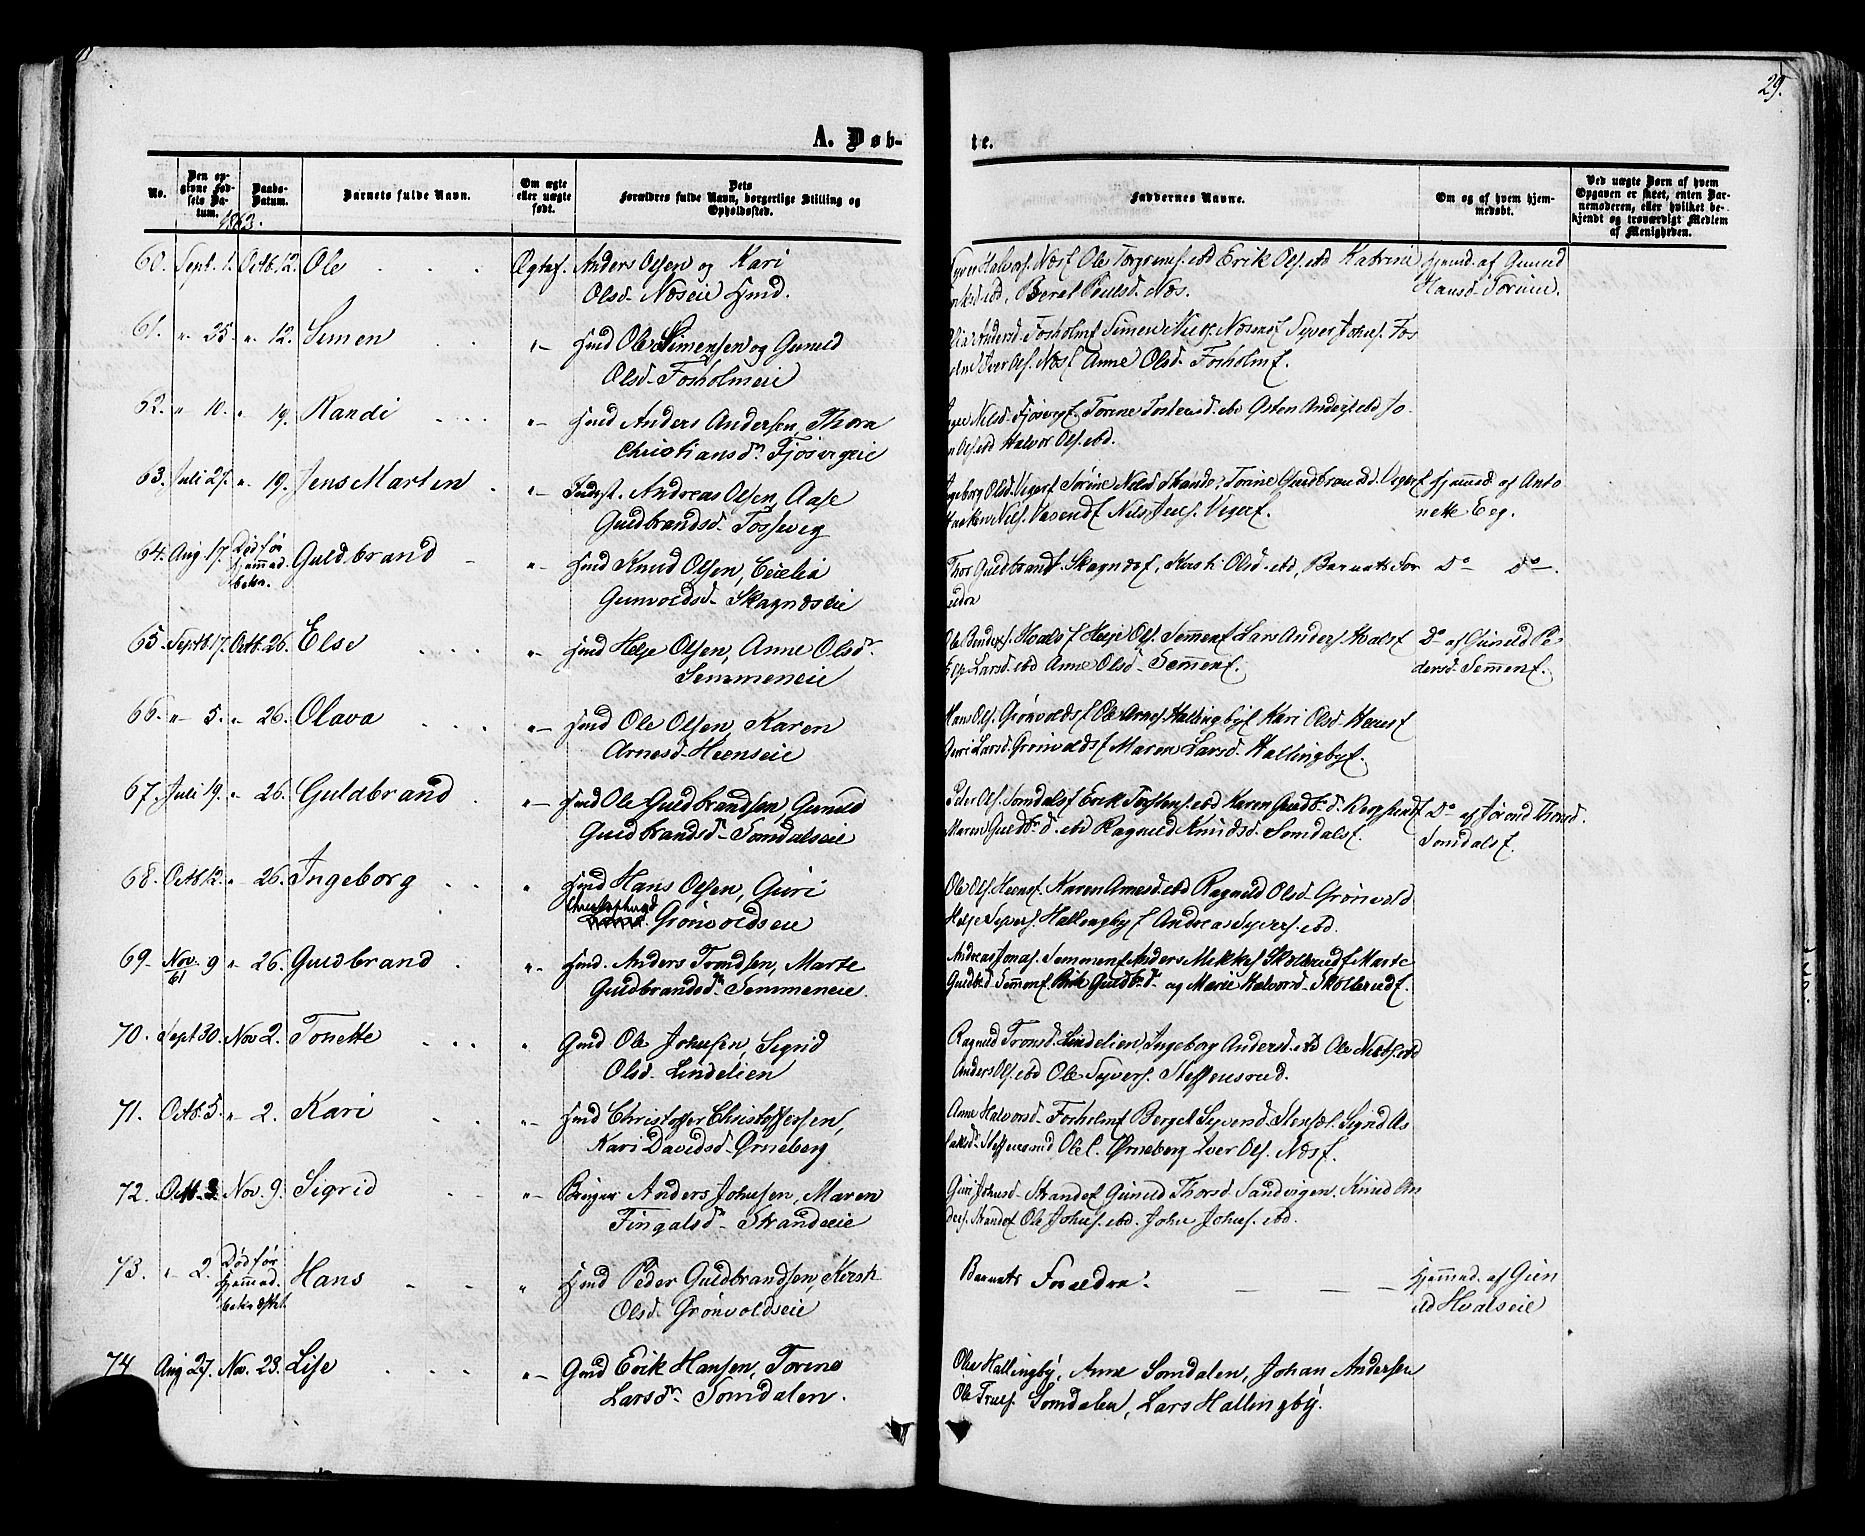 29.
A. Døb-
te.
No.
Den op-
givne Fød-
sels Da-
tum.
Daabs-
Datum.
1863.
Barnets fulde Navn.
Om ægte
eller uægte
født.
Dets
Forældres fulde Navn, borgerlige Stilling og
Opholdssted.
Faddernes Navne.
Om og af hvem hjem-
medøbt.
Ved uægte Børn af hvem
Opgaven er skeet, enten Bar-
nemoderen, eller hvilket be-
kjendt og troværdigt Medlem
af Menigheden.
60. Sept. 1. Octb. 12. Ole Ægtef. Anders Olsen og Kari
Olsd. Næseie Hmd.
Halvors. Næsf Ole Torgrims. ibd Erik Ols. ibd Katrine
ibd, Beret Pauls d. Næs.
Hjemd. af Gunild
Hansd.
61. " 25. " 12. Simen "- Hmd Ole Simensen og Gunild
Olsd. Fosholmeie
Andersd. Fosholmf Simen Niels. Næsmf Syver Johns. Fos
Iver Ols. Næsf Anne Olsd. Fosholmf.
62. " 10. " 19. Randi "- Hmd Anders Andersen, Thora
Christiansd. Fjøsvigeie
Nilsd. Torine Tostensd. ibd Østen Anders. ibd Jo-
Ols. ibd Halvor Ols. ibd.
63. Juli 27. " 19. Jens Martin "- Indst. Andreas Olsen, Aase
Guldbrandsd. Fossevig
Ingeborg Olsd. Vagerf Sørine Nilsd. Strande, Torine Guldbrandsd. Vagerf
Haaken Nils. Nils Jens. Vagerf.
Hjemmed. af Anto
nette Eeg.
64. Aug. 17. Død før
Hjemmed.
bekr.
Guldbrand "- Hmd Knud Olsen, Cecilia
Gunvoldsd. Skagnæseie
Thor Guldbrands. Skagnæsf, Kirsti Olsd. ibd, Barnets For
ældre
Do Do.
65. Septb. 17. Octb. 26. Else "- Hmd Helge Olsen, Anne Olsd.
Semmeneie
Ole Hvalsf Helge Ols. Semmenf Lars Anders. Hvalsf
Larsd. ibd Anne Olsd. Semmenf.
Do af Gunild Pe-
dersd. Semmenf.
66. " 5. " 26. Olava "- Hmd Ole Olsen, Karen
Arnesd. Heenseie
Hans Ols. Grønvoldsf Ole Arnes. Hallingbyf Kari Olsd. Heensf
Guri Larsd. Grønvoldsf Maren Larsd. Hallingbyf.
67. Juli 19. " 26. Guldbrand "- Hmd Ole Guldbrandsen, Gunild
Guldbrandsd. Somdalseie
Peder Ols. Somdalsf Erik Tostens. ibd Karen Guldbr.d.
Maren Guldbr.d. ibd Ragnild Knudsd. Somdalsf.
Do af Jørand Thoresd.
Somdalsf.
68. Octb. 12. " 26. Ingeborg " Hmd Hans Olsen, Guri
Christophersd
Grønvoldseie
Ole Ols. Heensf. Karen Arnesd. ibd Ragnild Olsd. Grønvold
Helge Syvers. Hallingbyf Andreas Syvers. ibd.
69. Nov. 9
61
" 26. Guldbrand "- Hmd. Anders Trondsen, Marte
Guldbrandsd. Semmeneie.
Andreas Jonas. Semmenf Anders Mikkels. Skollerudf Marte
Guldbr.d Semmenf. Erik Guldbr. og Marie Halvorsd. Skollerudf.
70. Sept 30. Nov 2. Tonette " Gmd Ole Johnsen, Sigrid
Olsd. Lindelien
Ragnild Tronsd. Lindelien, Ingeborg Andersd. ibd Ole Nils. ibd
Anders Ols. ibd Ole Syvers. Steffensrud.
71. Octb. 5. " 2. Kari "- Hmd Christoffer Christoffersen,
Kari Davidsd. Ørneberg
Anne Halvorsd. Fosholmf Berget Syversd. Sigrid As
laksd. Steffensrud Ole C. Ørneberg Iver Ols. Næsf.
72. Octb. 3. Nov. 9. Sigrid "- Bruger Anders Johnsen, Maren
Fingalsd. Strandeie
Guri Johnsd. Strandef Gunild Thorsd. Sandvigen. Knud An
ders. Strandef Ole Johns. ibd. John Johns. ibd.
73. " 2. Død før
Hjemmed.
bekræftet.
Hans " Hmd Peder Guldbrandsen, Kirsti
Olsd. Grønvoldseie
Barnets Forældre.
Hjemmed. af Gun
ild Hvalseie
74 Aug 27. Nov. 23. Lise "- Gmd Erik Hansen, Torine
Larsd. Somdalen.
Ole Hallingby, Anne Somdalen, Johan Andersen
Ole Trues. Somdalen, Lars Hallingby.